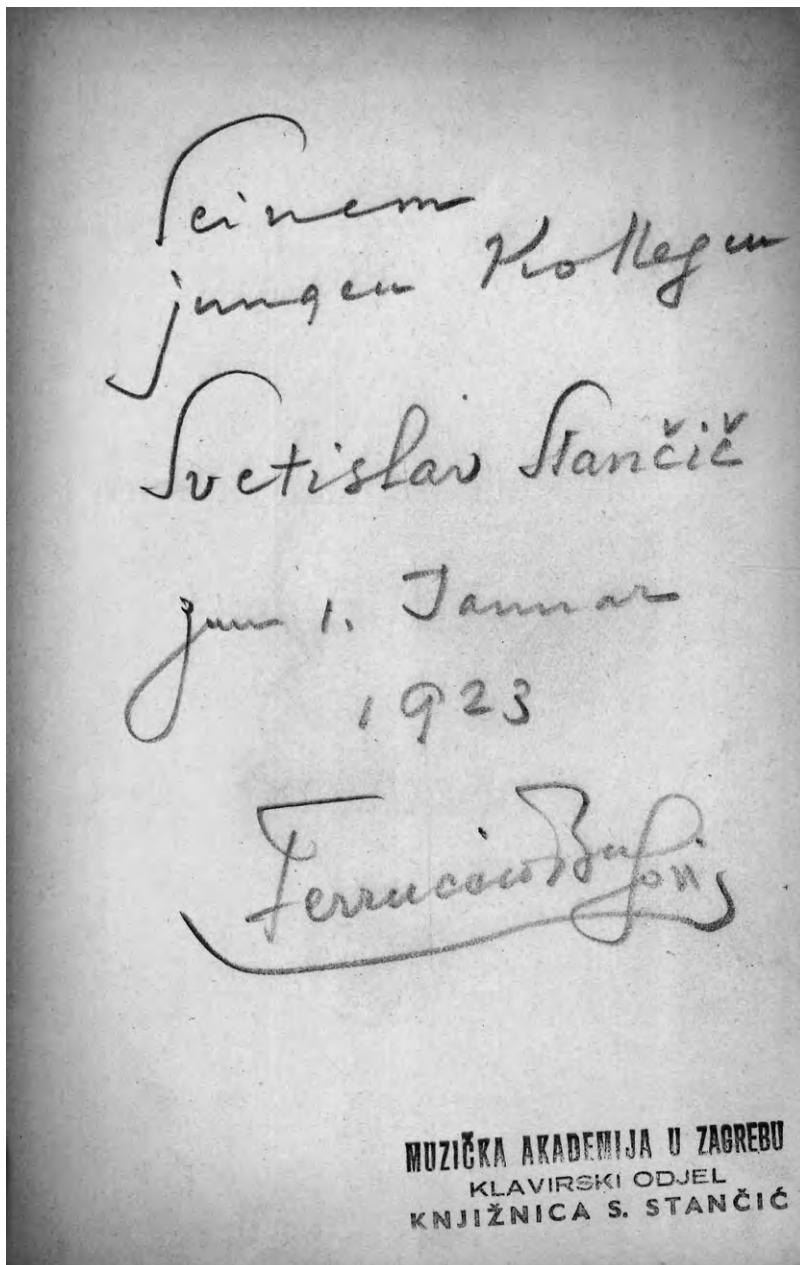 Seinem
jungen Kollegen
Svetislav Stančič
zum 1. Januar
1923
Ferruccio Busoni
MUZIČKA AKADEMIJA U ZAGREBU
KLAVIRSKI ODJEL
KNJIŽNICA S. STANČIĆ